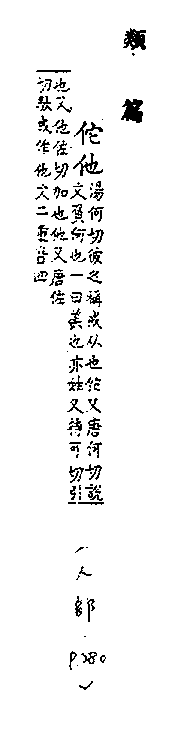 類篇
佗他
湯何切彼之稱或从也佗又唐何切說
文負何也一曰美也亦姓又待可切引
也又他佐切加也他又唐佐
切㱔或作他文二重音四
人部
P.280